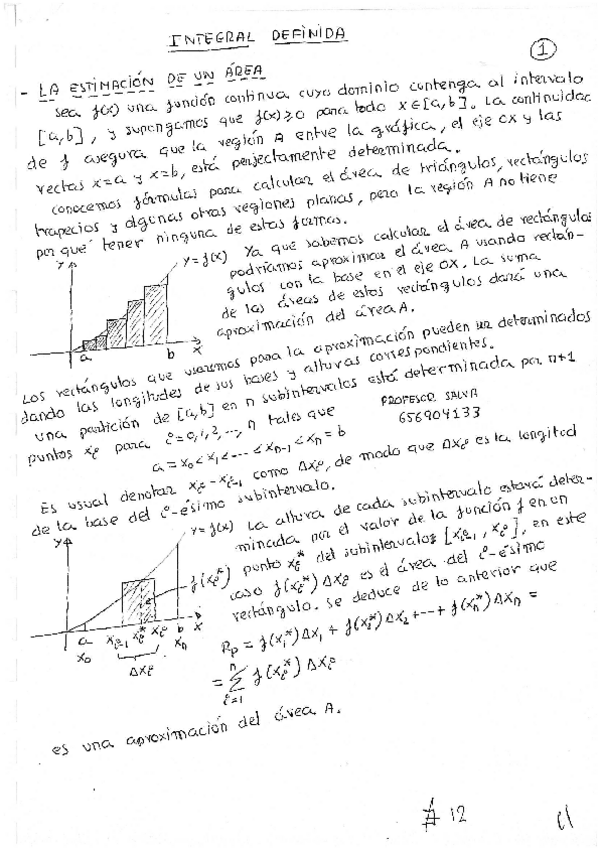 INTEGRAL DEFINIDA
1
- LA ESTIMACIÓN DE UN ÁREA
Sea f(x) una función continua cuyo dominio contenga al intervalo
[a,b], y supongamos que f(x)≥0 para todo x∈[a,b]. La continuidad
de f asegura que la región A entre la gráfica, el eje OX y las
rectas x=a y x=b, está perfectamente determinada.
Conocemos fórmulas para calcular el área de triángulos, rectángulos
trapecios y algunas otras regiones planas, pero la región A no tiene
por qué tener ninguna de estas formas.
y
y=f(x)
a
b
x
Ya que sabemos calcular el área de rectángulos
podríamos aproximar el área A usando rectán-
gulos con la base en el eje OX. La suma
de las áreas de estos rectángulos dará una
aproximación del área A.
Los rectángulos que usaremos para la aproximación pueden ser determinados
dando las longitudes de sus bases y alturas correspondientes.
Una partición de [a,b] en n subintervalos está determinada por n+1
puntos xᵢ para i=0,1,2,...,n tales que
PROFESOR SALVA
656904133
a=x₀<x₁<---<xₙ₋₁<xₙ=b
Es usual denotar xᵢ-xᵢ₋₁ como Δxᵢ, de modo que Δxᵢ es la longitud
de la base del i-ésimo subintervalo.
y
y=f(x)
f(xᵢ*)
a
x₀
xᵢ₋₁
xᵢ*
xᵢ
b
xₙ
x
Δxᵢ
La altura de cada subintervalo estará deter-
minada por el valor de la función f en un
punto xᵢ* del subintervalo [xᵢ₋₁, xᵢ], en este
caso f(xᵢ*)Δxᵢ es el área del i-ésimo
rectángulo. Se deduce de lo anterior que
Rₚ = f(x₁*)Δx₁ + f(x₂*)Δx₂ +---+ f(xₙ*)Δxₙ =
= ∑ⁿᵢ₌₁ f(xᵢ*)Δxᵢ
es una aproximación del área A.
# 12